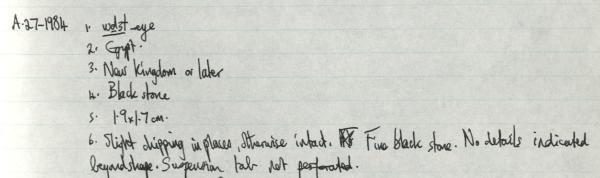 A.27-1984 1. wdst-eye
2. Egypt.
3. New Kingdom or later
4. Black stone
5. 1.9x1.7cm.
6. Slight chipping in places, otherwise intact. Fine black stone. No details indicated
beyond shape. Suspension tab not perforated.